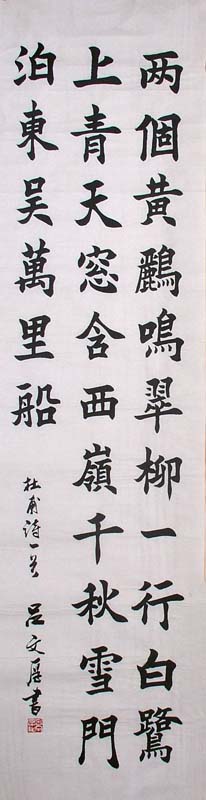 两個黄鸝鳴翠柳一行白鷺
上青天窓含西嶺千秋雪門
泊東吴萬里船
杜甫诗一首 吕文厚書